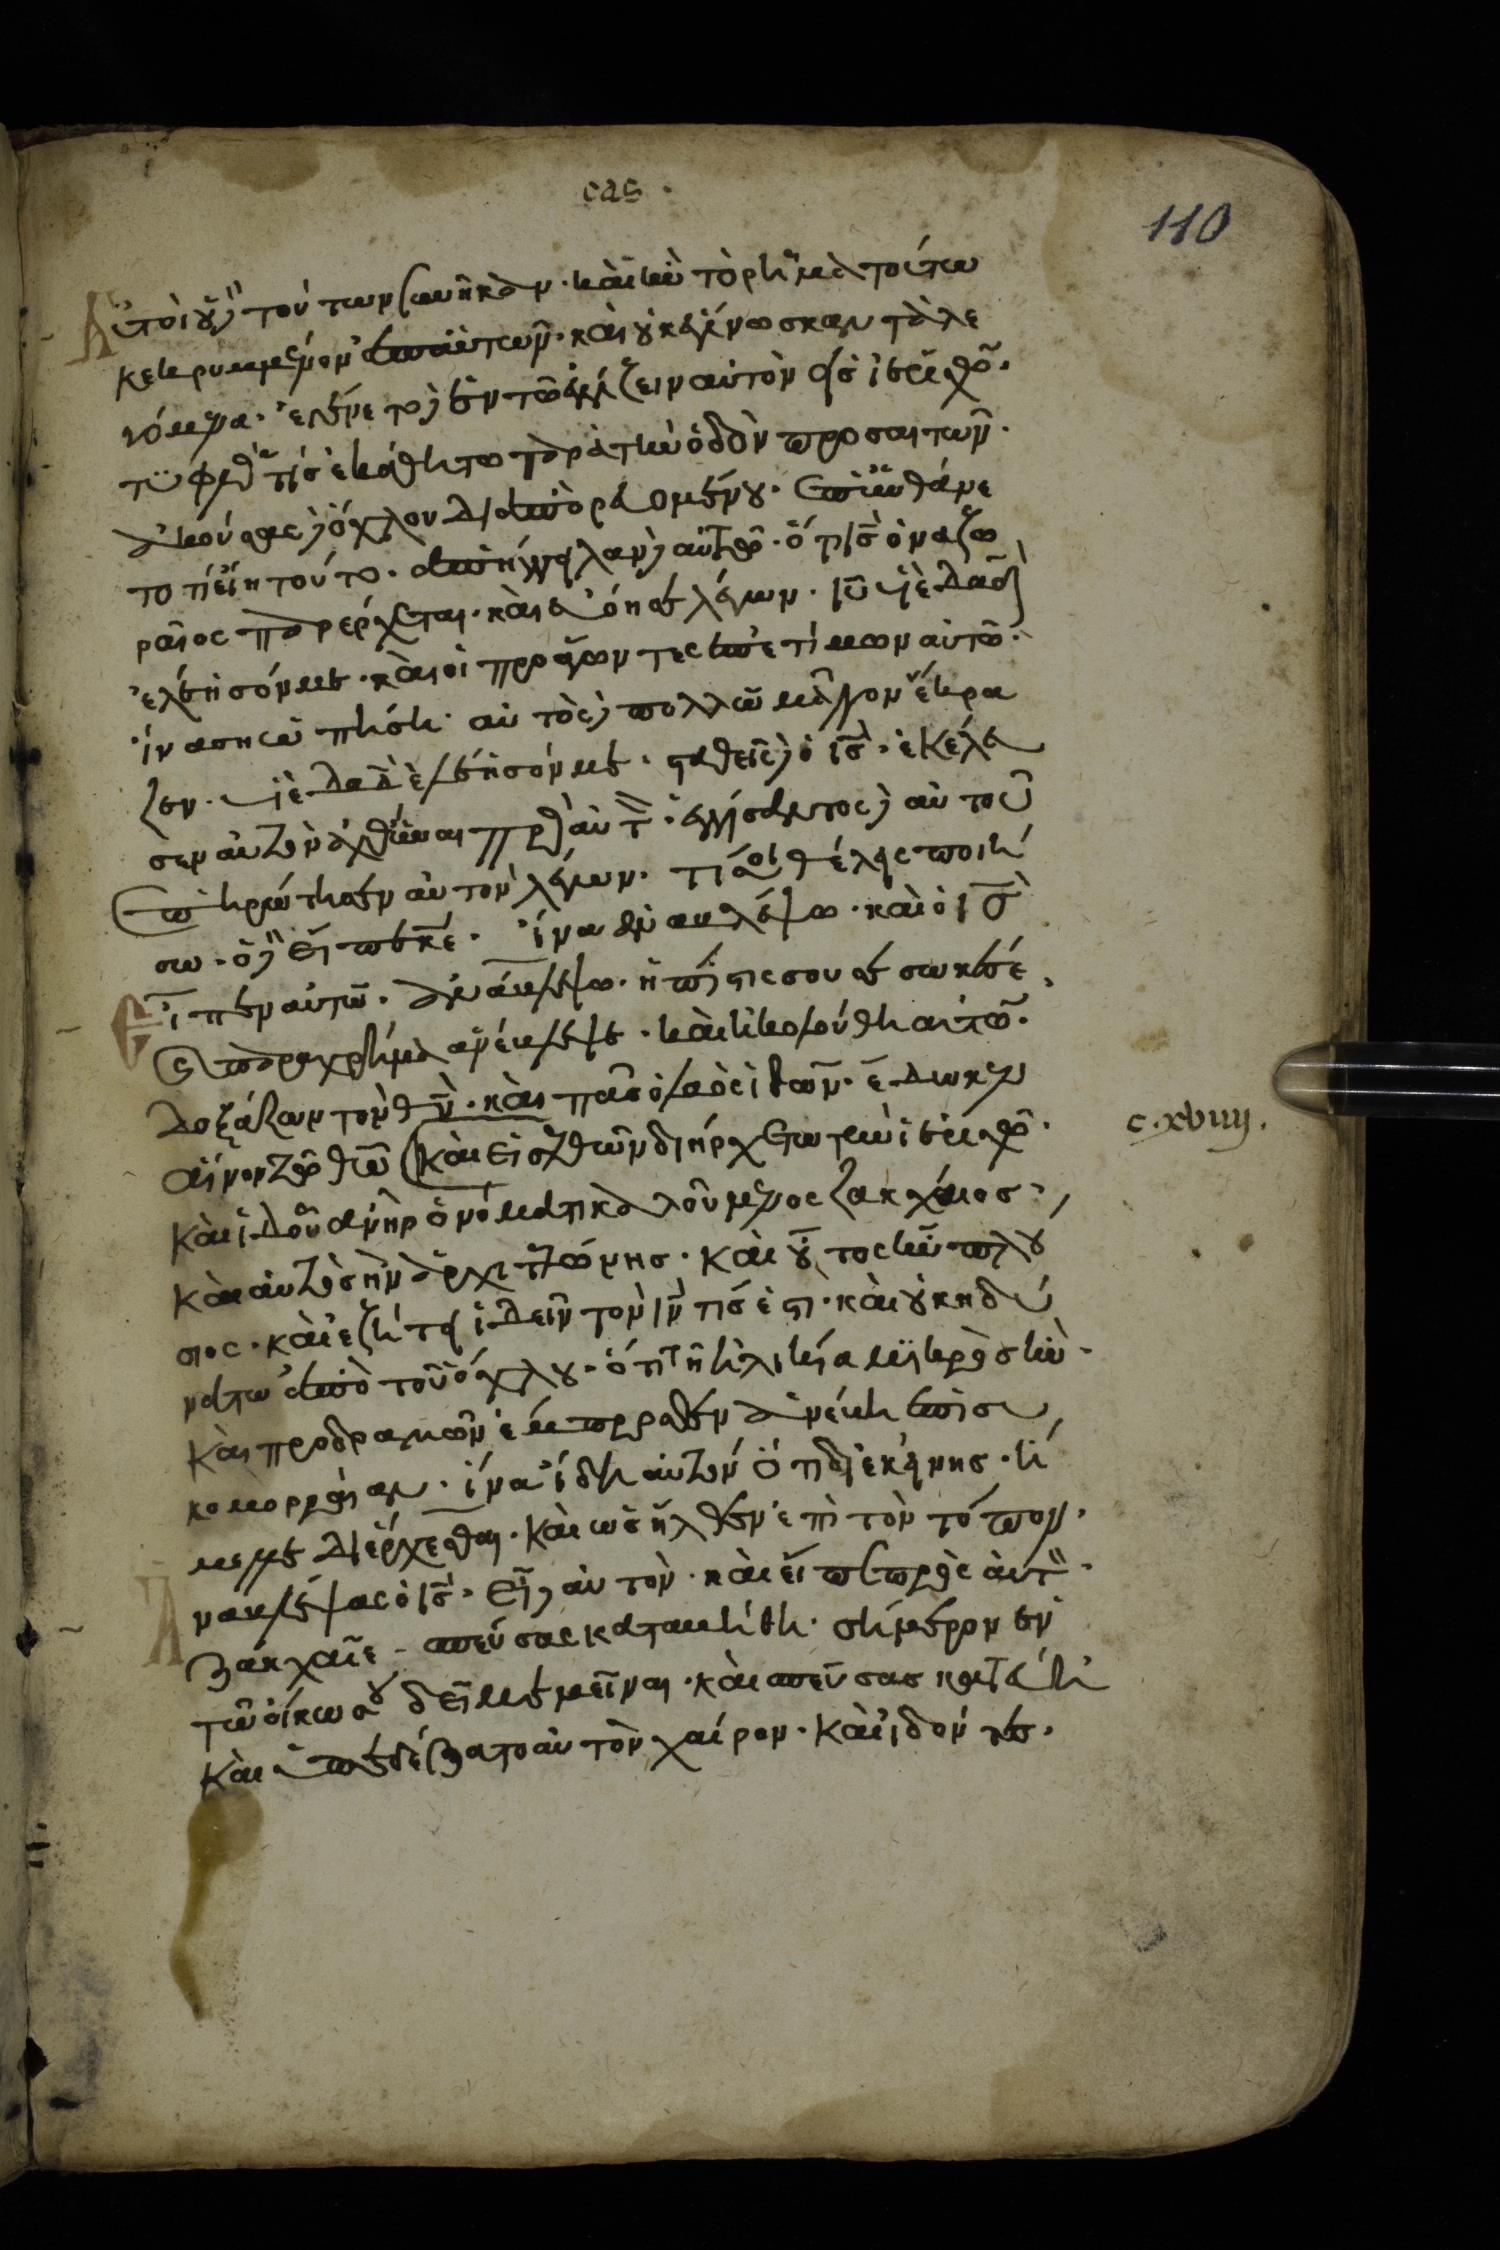 cas .
110
Αὐτοὶ οὐδὲν τούτων συνῆκαν· καὶ ἦν τὸ ῥῆμα τοῦτο
κεκρυμμένον ἀπ' αὐτῶν· καὶ οὐκ ἐγίνωσκον τὰ λε
γόμενα· ἐγένετο δὲ ἐν τῷ ἐγγίζειν αὐτὸν εἰς ἱεριχῶ·
τυφλός τις ἐκάθητο παρὰ τὴν ὁδὸν προσαιτῶν·
ἀκούσας δὲ ὄχλου διαπορευομένου· ἐπυνθάνε
το τί εἴη τοῦτο· ἀπήγγειλαν δὲ αὐτῷ· ὅτι ις ὁ ναζω
ραῖος παρέρχεται· καὶ ἐβόησε λέγων· ιυ υἱὲ δαδ
ἐλέησόν με· καὶ οἱ προάγοντες ἐπετίμων αὐτῷ·
ἵνα σιωπήσῃ· αὐτὸς δὲ πολλῷ μᾶλλον ἔκρα
ζεν· υἱὲ δαδ ἐλέησόν με· σταθεὶς δὲ ὁ ις· ἐκέλευ
σεν αὐτὸν ἀχθῆναι πρὸς αὐτόν· ἐγγίσαντος δὲ αὐτοῦ
ἐπηρώτησεν αὐτὸν λέγων· τί σοι θέλεις ποιή
σω· ὁ δὲ εἶπε κε· ἵνα ἀναβλέψω· καὶ ὁ ις
εἶπεν αὐτῷ· ἀνάβλεψον· ἡ πίστις σου σέσωκέ σε·
καὶ παραχρῆμα ἀνέβλεψε· καὶ ἠκολούθη αὐτῷ·
δοξάζων τὸν θν· καὶ πᾶς ὁ λαὸς ἰδὼν· ἔδωκεν
αἶνον τῷ θω καὶ εἰσελθὼν διήρχετο τὴν ἱεριχῶ·
c. xviiij.
καὶ ἰδοὺ ἀνὴρ ὀνόματι καλούμενος ζακχαῖος·
καὶ αὐτὸς ἦν ἀρχιτελώνης· καὶ οὗτος ἦν πλού
σιος· καὶ ἐζήτει ἰδεῖν τὸν ιν τίς ἐστι· καὶ οὐκ ἠδύ
νατο ἀπὸ τοῦ ὄχλου· ὅτι τῇ ἡλικίᾳ μικρὸς ἦν·
καὶ προδραμὼν ἔμπροσθεν ἀνέβη ἐπὶ συ
κομορέαν· ἵνα ἴδῃ αὐτόν ὅτι δι' ἐκείνης· ἤ
μελλε διέρχεσθαι· καὶ ὡς ἦλθεν ἐπὶ τὸν τόπον·
ἀναβλέψας ὁ ις· εἶδεν αὐτὸν· καὶ εἶπε πρὸς αὐτόν·
ζακχαῖε σπεύσας κατάβηθι· σήμερον ἐν
τῷ οἴκῳ σου δεῖ με μεῖναι· καὶ σπεύσας κατέβη
καὶ ὑπεδέξατο αὐτὸν χαίρων· καὶ ἰδόντες·